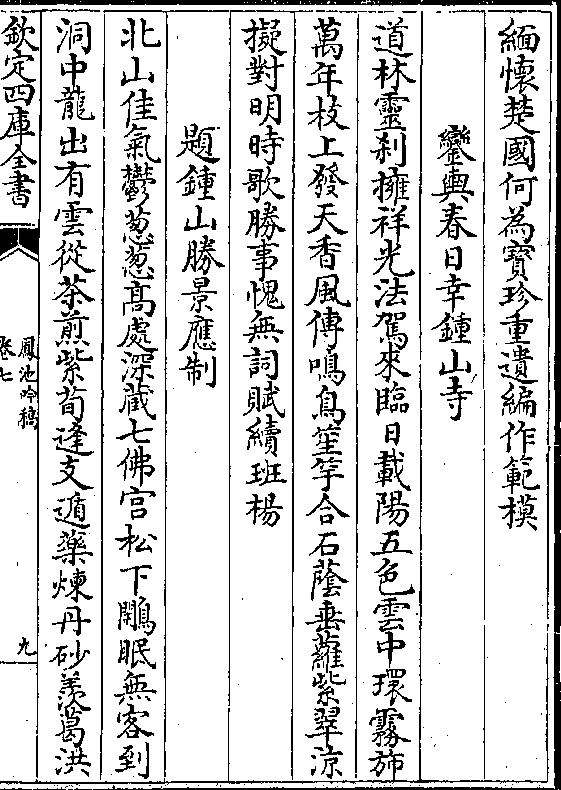 緬懷楚國何為寶珍重遺編作範模
鑾輿春日幸鍾山寺
道林靈刹擁祥光法駕來臨日載陽五色雲中環霧斾
萬年枝上發天香風傳鳴鳥笙竽合石蔭垂蘿紫翠涼
擬對明時歌勝事愧無詞賦續班楊
題鍾山勝景應制
北山佳氣鬱葱葱髙處深蔵七佛宫松下鵰眠無客到
洞中龍出有雲從茶煎紫荀逢支遁藥煉丹砂羨葛洪
欽定四庫全書
鳳池吟稿
卷七
九